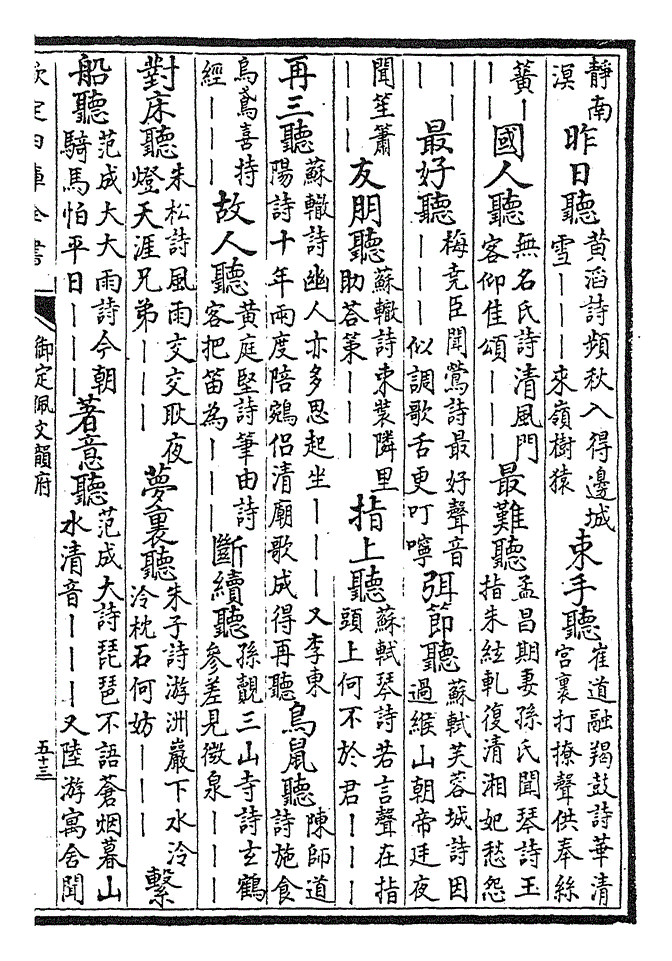 靜南溟 昨日聽 黄滔詩頻秋入得邊城雪｜｜｜來嶺樹猿 束手聽 崔道融羯鼓詩華清宮裏打撩聲供奉絲
簧｜｜｜ 國人聽 無名氏詩清風門客仰佳頌｜｜｜ 最難聽 孟昌期妻孫氏聞琴詩玉指朱絃軋復清湘妃愁怨
｜｜｜ 最好聽 梅堯臣聞鶯詩最好聲音｜｜｜似調歌舌更叮嚀 弭節聽 蘇軾芙蓉城詩因過緱山朝帝廷夜
聞笙簫｜｜｜ 友朋聽 蘇轍詩束裝隣里助荅第｜｜｜ 指上聽 蘇軾琴詩若言聲在指頭上何不於君｜｜｜
再三聽 蘇轍詩幽人亦多思起坐｜｜｜又李東陽詩十年兩度陪鵷侣清廟歌成得再聽 鳥鼠聽 陳師道詩施食
烏鳶喜持經｜｜｜ 故人聽 黄庭堅詩筆由詩客把笛為｜｜｜ 斷續聽 孫覿三山寺詩玄鶴參差見微泉｜｜｜
對床聽 朱松詩風雨交交耿夜燈天涯兄弟｜｜｜ 夢裏聽 朱子詩游洲巖下水泠泠枕石何妨｜｜｜ 繫
船聽 范成大大雨詩今朝騎馬怕平日｜｜｜ 著意聽 范成大詩琵琶不語蒼烟暮山水清音｜｜｜又陸游寓舍聞
欽定四庫全書 御定佩文韻府 五十三